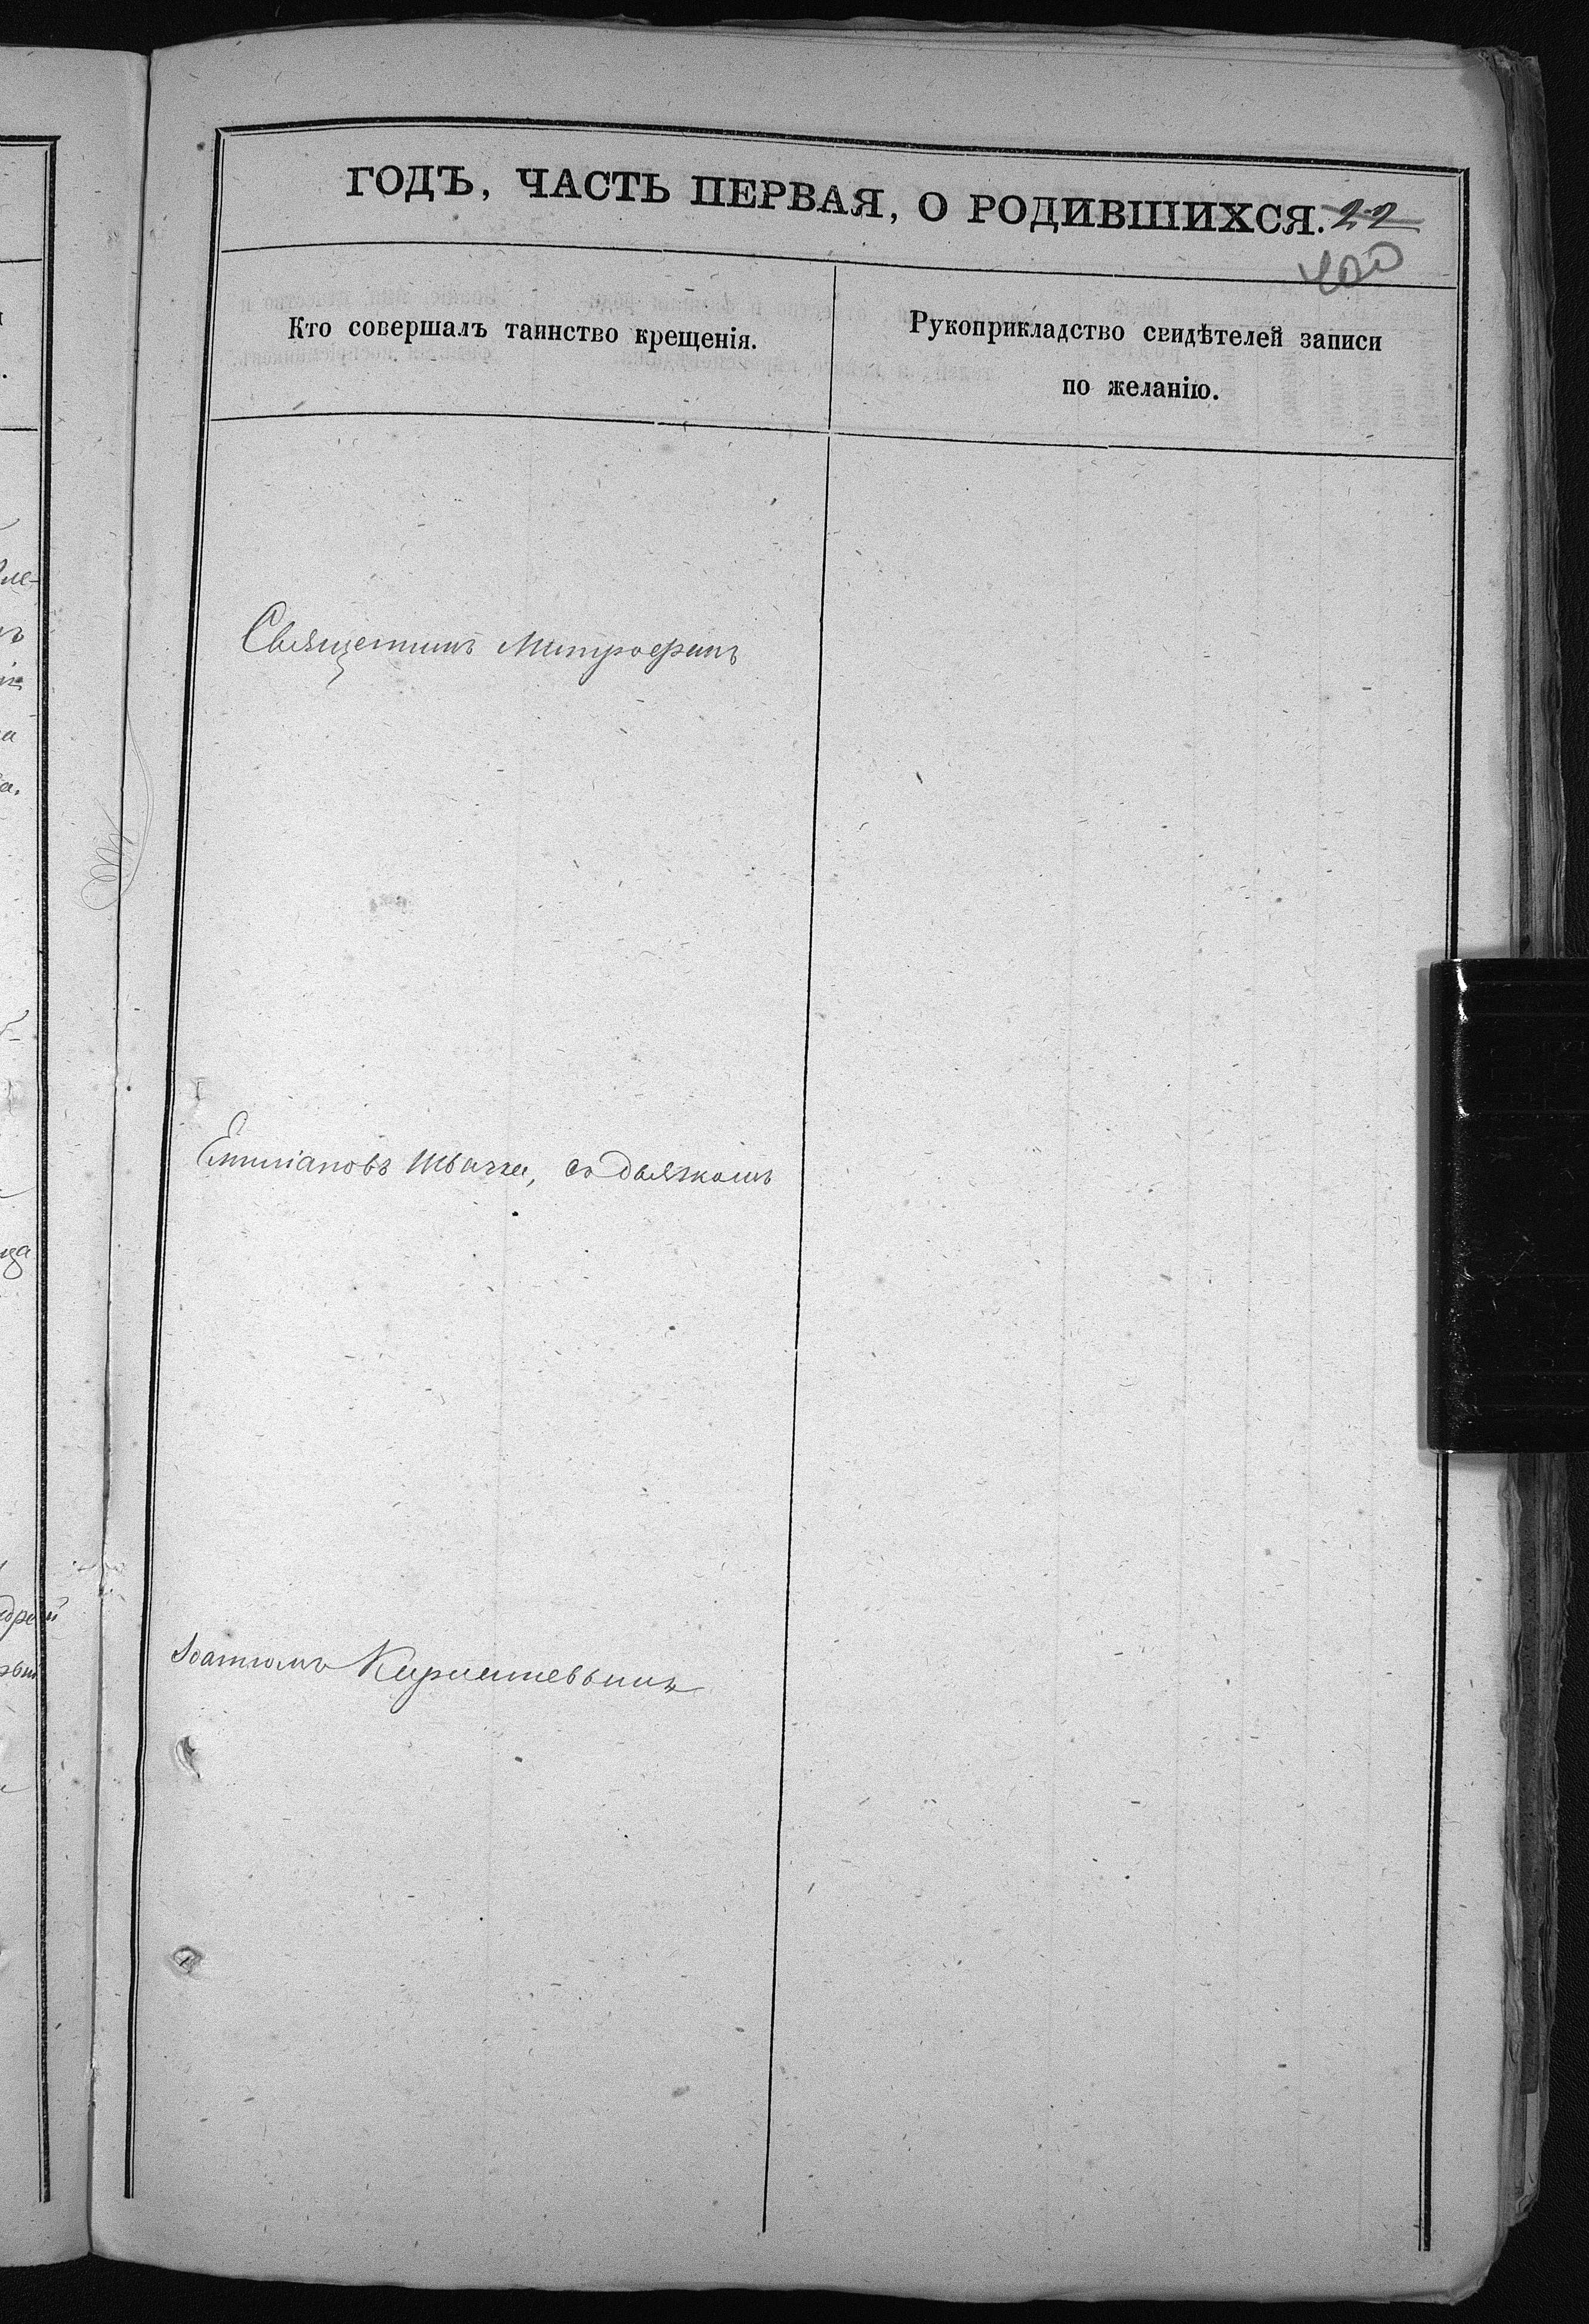 ГОДЪ, ЧАСТЬ ПЕРВАЯ, О РОДИВШИХСЯ. 22
400
Кто совершалъ таинство крещенія.
Рукоприкладство свидѣтелей записи
по желанію.
Священникъ Митрофанъ
Емиліановъ Швачка, съ дьячкомъ
Іоанномъ